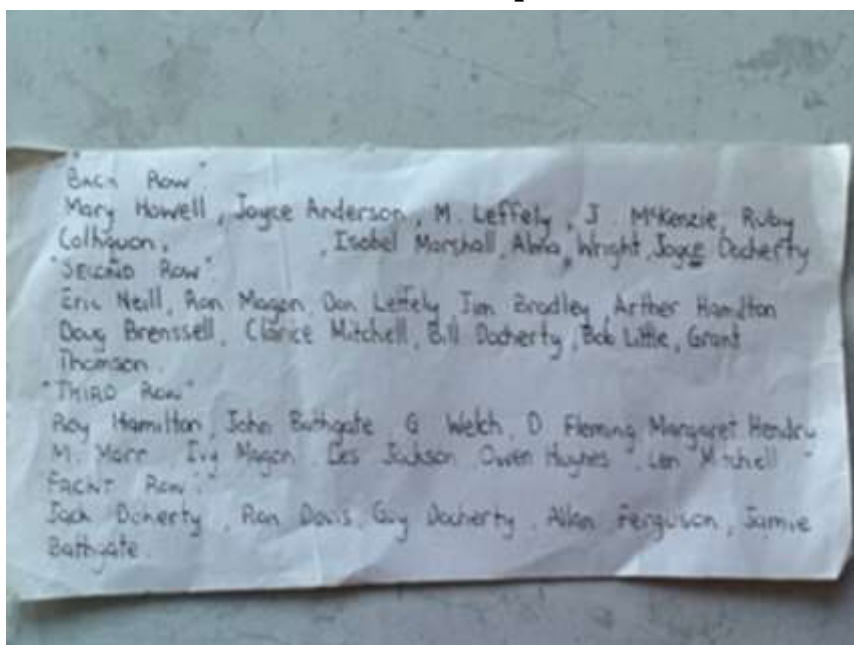 "BACK Row"
Mary Howell, Joyce Anderson, M. Leffely, J McKenzie, Ruby
Colhquon, , Isobel Marshall, Alma, Wright, Joyce Docherty
"SECOND Row".
Eric Neill, Ron Magon, Don Leffely, Jim Bradley, Arther Hamilton
Doug Brenssell, Clarice Mitchell, Bill Docherty, Bob Little, Grant
Thomson.
"THIRD Row"
Roy Hamilton, John Bathgate, G Welch, D Fleming, Margaret Hendry
M. Marr Ivy Magon Les Jackson Owen Hughes Len Mitchell
FRONT Row."
Jack Doherty, Ron Davis, Guy Docherty, Allan Ferguson, Jamie
Bathgate.